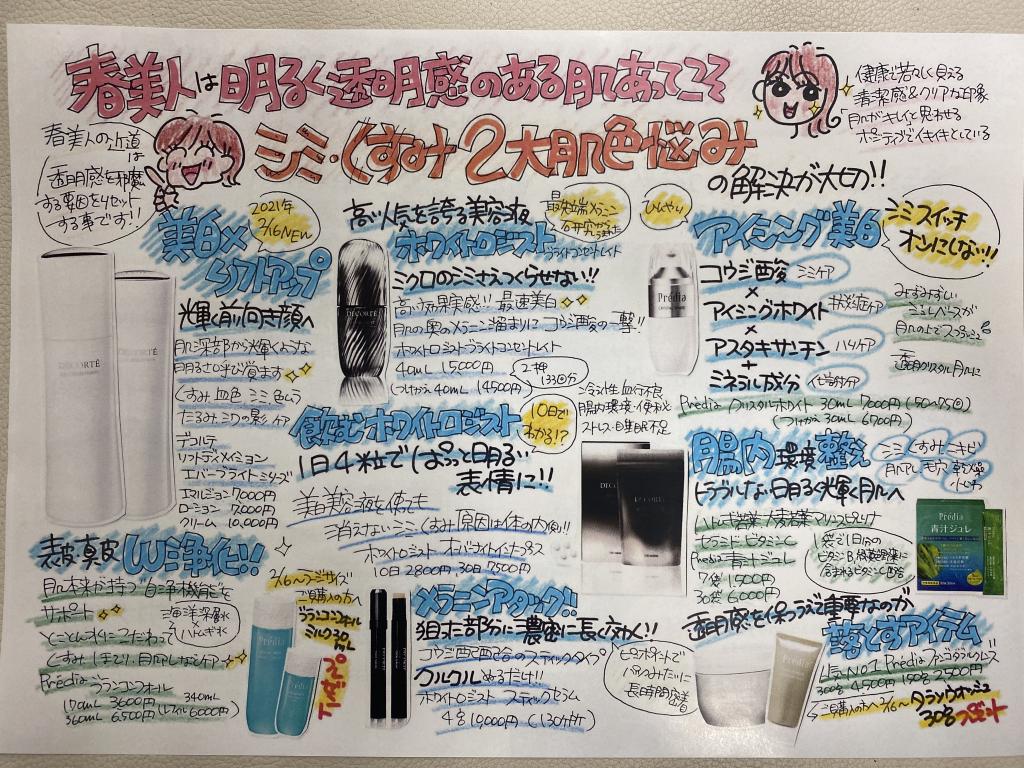 春美人は明るく透明感のある肌あってこそ
シミ・くすみ2大肌色悩み
の解決が大切!!
健康で若々しく見える
清潔感&クリアな印象
肌がキレイと思わせる
ポジティブでイキイキとしている
春美人の近道
は
透明感を邪魔
する要因をリセット
する事です!!
美白×
リフトアップ
2021年
2/16NEW
輝く前向き顔へ
肌深部から輝くような
明るさ呼び覚ます
くすみ 血色 シミ 色ムラ
たるみ シワの影ケア
コスメデコルテ
リフトディメンション
エバーブライトシリーズ
エマルジョン 7,000円
ローション 7,000円
クリーム 10,000円
DECORTÉ
DECORTÉ
高い人気を誇る美容液
ホワイトロジスト
ブライトコンセントレイト
最先端メラニン
の研究
ミクロのシミさえつくらせない!!
高い効果実感!! 最速美白
肌の奥のメラニン溜まりに コウジ酸で一撃!!
ホワイトロジストブライトコンセントレイト
40mL 15,000円
(つけかえ40mL 14500円)
2押
133回分
DECORTÉ
ひんやり
アイシング美白
シミスイッチ
オンにしない!!
コウジ酸 シミケア
×
アイシングホワイト 炎症ケア
×
アスタキサンチン ハリケア
+
ミネラル成分
みずみずしい
ジュレベースが
肌の上でスプラッシュ
透明クリスタル肌に
Prédia クリスタルホワイト 30mL 7000円(50~75回)
つけかえ 30mL 6,700円
Prédia
飲むホワイトロジスト
10日で
わかる!?
1日4粒でぱっと明るい
表情に!!
冷え性 血行不良
腸内環境・便秘
ストレス・睡眠不足
美白美容液を使っても
消えないシミ くすみ原因は体の内側!!
10日 2800円、30日 7500円
DECORTÉ
DECORTÉ
腸内環境整え
トラブルない明るく輝く肌へ
シミ くすみ ニキビ
肌アレ 毛穴 乾燥
小ジワ
セラミド ビタミンC
Prédia 青汁ジュレ
7袋 1,500円
30袋 6,000円
Prédia
青汁ジュレ
表皮・真皮W浄化!!
肌本来が持つ“自浄機能”を
サポート
海洋深層水
ハトムギ水
とことんオリにこだわって
くすみ 1本でシミ、肌アレなどケア
Prédia ブランコンフォール
170mL 3600円 340mL
360mL 6,500円(レフィル6000円)
2/16~ラージサイズ
ご購入の方へ
ブランコンフォール
ミルク30
mL
プレゼント
Prédia
メラニンアタック!!
狙った部分に濃密に長く効く!!
コウジ酸配合のスティックタイプ
クルクルぬるだけ!!
ホワイトロジスト スティックセラム
4g 10,000円
ピンポイントで
パックみたいに
長時間密着
透明感を保つうえで重要なのが
落とすアイテム
人気No.1 Prédia ファンゴ クレンズ
300g 4500円 150g 2500円
ご購入の方へ 2/16~ タラソウォッシュ
30gプレゼント